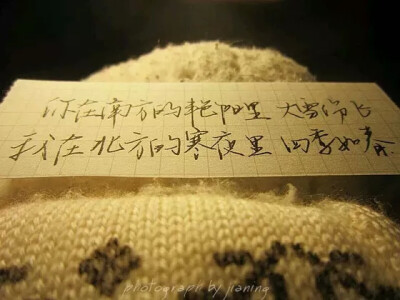 你在南方的艳阳里 大雪纷飞
我在北方的寒夜里 四季如春
photograph by jianing